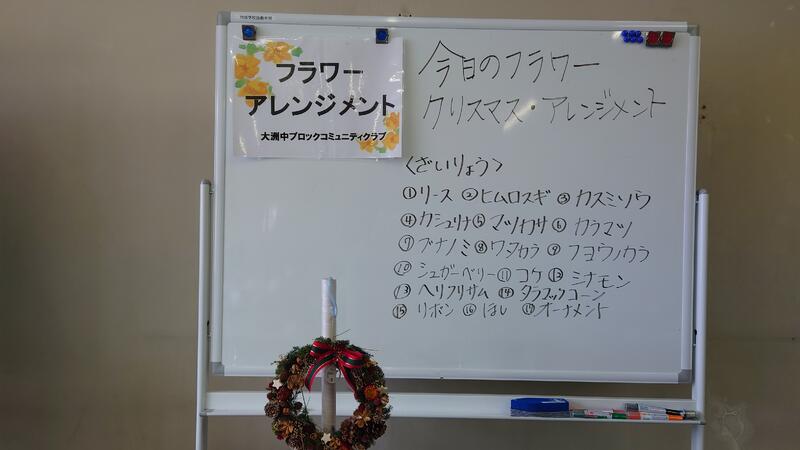 フラワー
アレンジメント
大洲中ブロックコミュニティクラブ
今日のフラワー
クリスマス・アレンジメント
〈ざいりょう〉
①リース ②ヒムロスギ ③カスミソウ
④カシュリナ ⑤マツカサ ⑥カラマツ
⑦ブナノミ ⑧ワタカラ ⑨フヨウノカラ
⑩シュガーベリー ⑪コケ ⑫シナモン
⑬ヘリクリサム ⑭タラフックコーン
⑮リボン ⑯ほし ⑰オーナメント